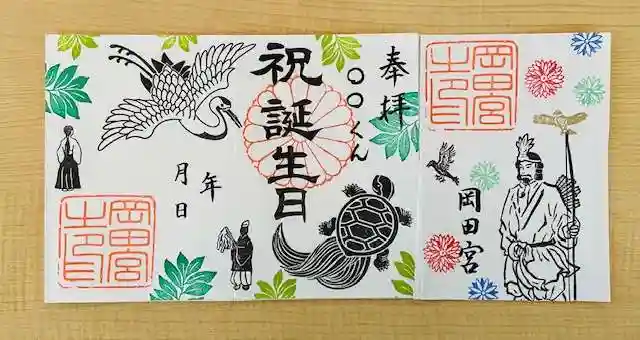 奉拝
〇〇くん
祝誕生日
年
月日
岡田宮
岡田宮
岡田宮